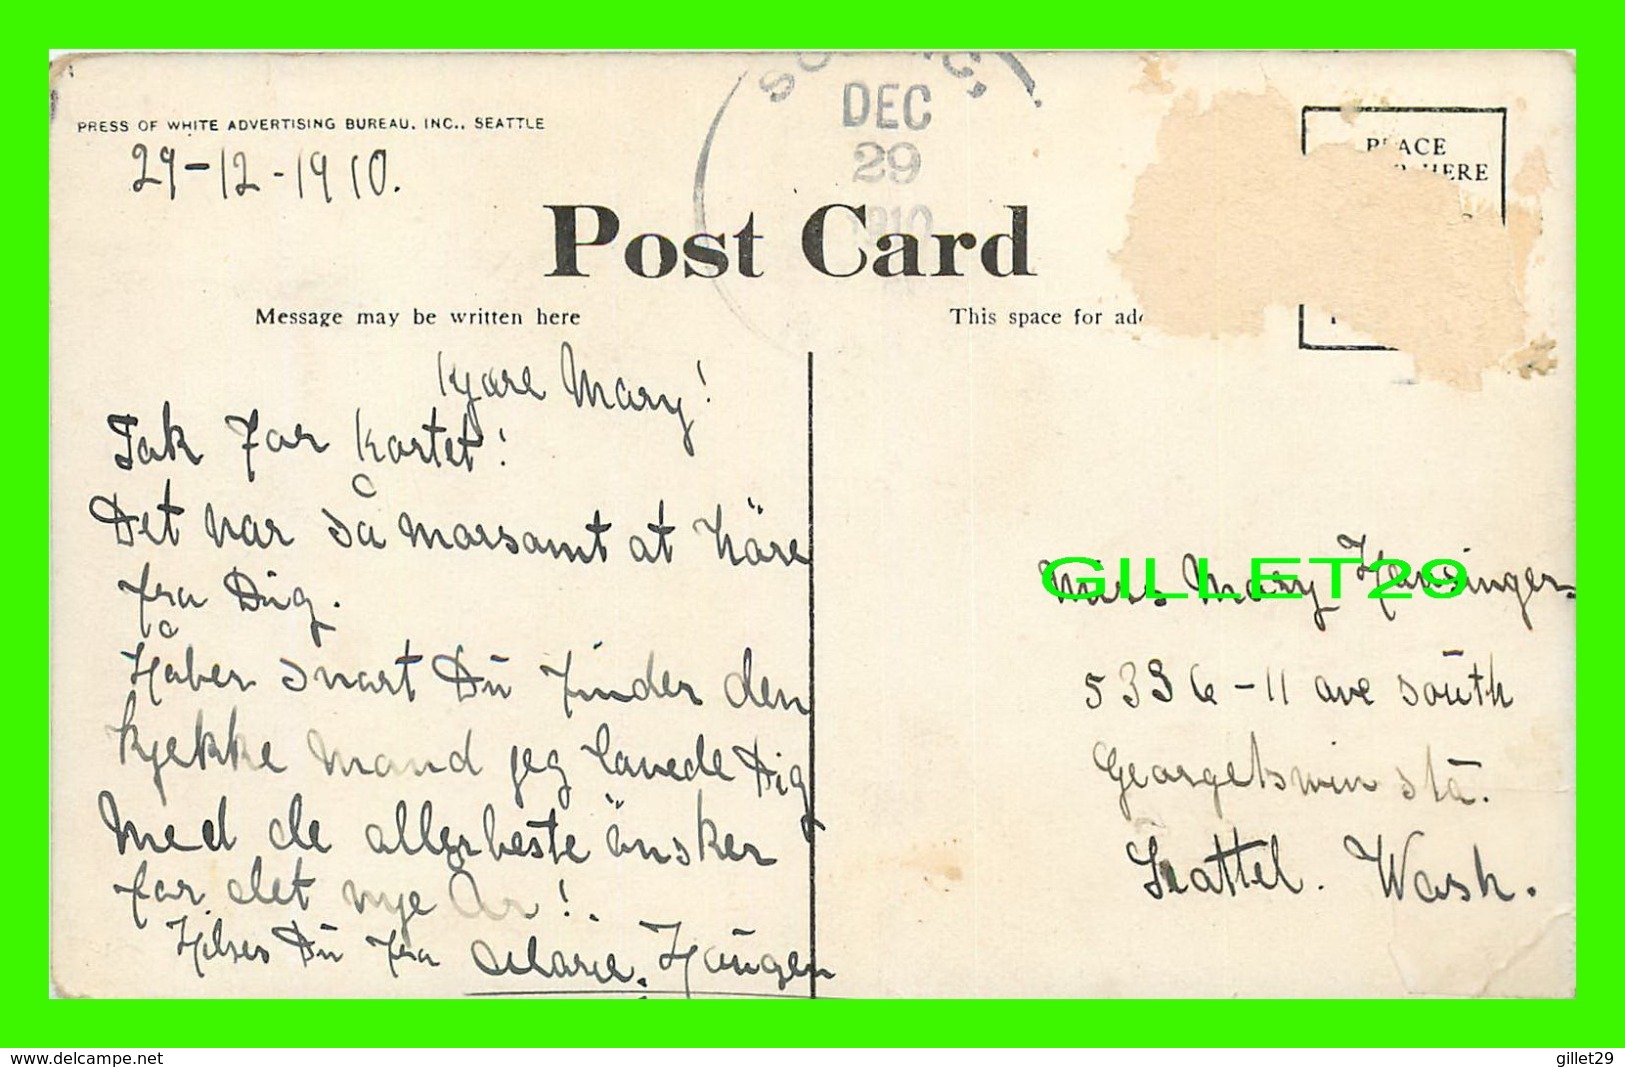 PRESS OF WHITE ADVERTISING BUREAU, INC., SEATTLE
29-12-1910.
DEC
29
1910
Post Card
PLACE
HERE
Message may be written here
This space for add
Kjære Mary!
Tak for kortet!
Det var så morsamt at höre
fra Dig.
Håber snart Dū finder den
kjekke Mand jeg lavede Dig
Med de allerbeste önsker
for det nye År!
Hilses Dū fra Marie. Haūgen
Miss Mary
5336-11 ave soūth
sta.
Seattel. Wash.
GILLET29
www.delcampe.net
gillet29